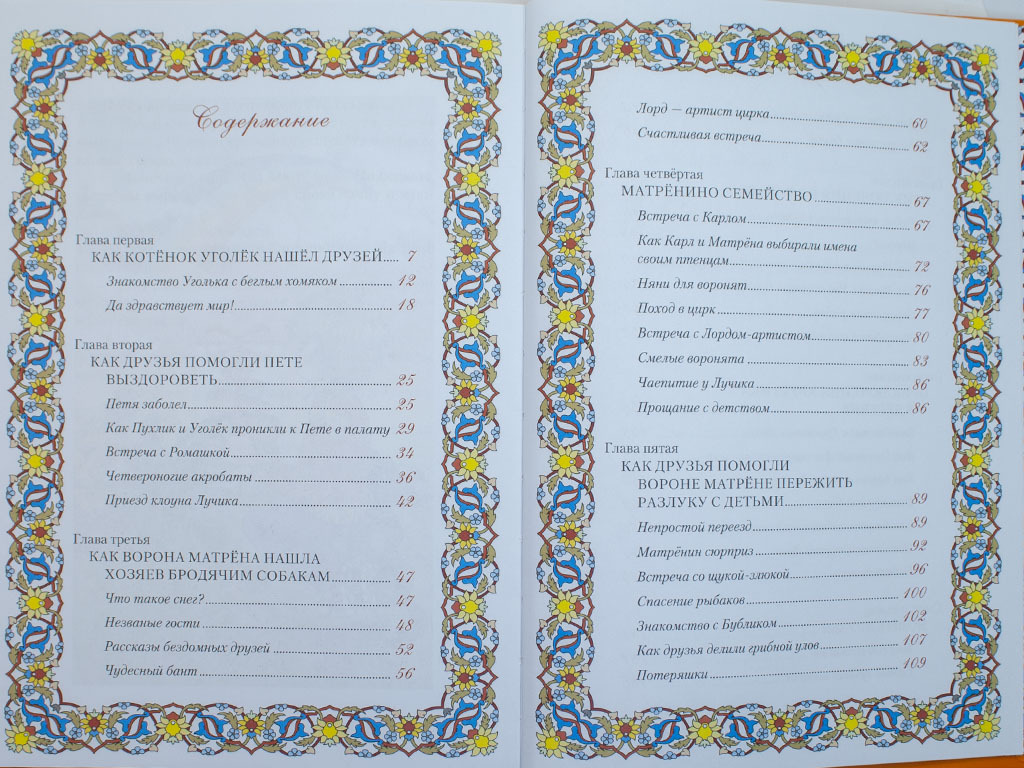 Содержание
Глава первая
КАК КОТЁНОК УГОЛЁК НАШЁЛ ДРУЗЕЙ..... 7
Знакомство Уголька с беглым хомяком ............... 12
Да здравствует мир!............... 18
Глава вторая
КАК ДРУЗЬЯ ПОМОГЛИ ПЕТЕ
ВЫЗДОРОВЕТЬ............... 25
Петя заболел............... 25
Как Пухлик и Уголёк проникли к Пете в палату 29
Встреча с Ромашкой............... 34
Четвероногие акробаты ............... 36
Приезд клоуна Лучика............... 42
Глава третья
КАК ВОРОНА МАТРЁНА НАШЛА
ХОЗЯЕВ БРОДЯЧИМ СОБАКАМ............... 47
Что такое снег?............... 47
Незваные гости ............... 48
Рассказы бездомных друзей ............... 52
Чудесный бант ............... 56
Лорд — артист цирка............... 60
Счастливая встреча............... 62
Глава четвёртая
МАТРЁНИНО СЕМЕЙСТВО ............... 67
Встреча с Карлом............... 67
Как Карл и Матрёна выбирали имена
своим птенцам............... 72
Няни для воронят ............... 76
Поход в цирк ............... 77
Встреча с Лордом-артистом............... 80
Смелые воронята ............... 83
Чаепитие у Лучика............... 86
Прощание с детством............... 86
Глава пятая
КАК ДРУЗЬЯ ПОМОГЛИ
ВОРОНЕ МАТРЁНЕ ПЕРЕЖИТЬ
РАЗЛУКУ С ДЕТЬМИ............... 89
Непростой переезд............... 89
Матрёнин сюрприз ............... 92
Встреча со щукой-злюкой............... 96
Спасение рыбаков............... 100
Знакомство с Бубликом............... 102
Как друзья делили грибной улов............... 107
Потеряшки ............... 109